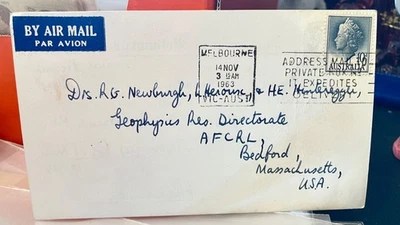 BY AIR MAIL
PAR AVION
MELBOURNE
14 NOV
3 AM
1963
VIC-AUST
ADDRESS MAIL TO
PRIVATE BOX No
IT EXPEDITES
DELIVERY
AUSTRALIA
Drs. R.G. Newburgh, & H.E.
Geophysics Res. Directorate
AFCRL,
Bedford,
Massachusetts,
USA.